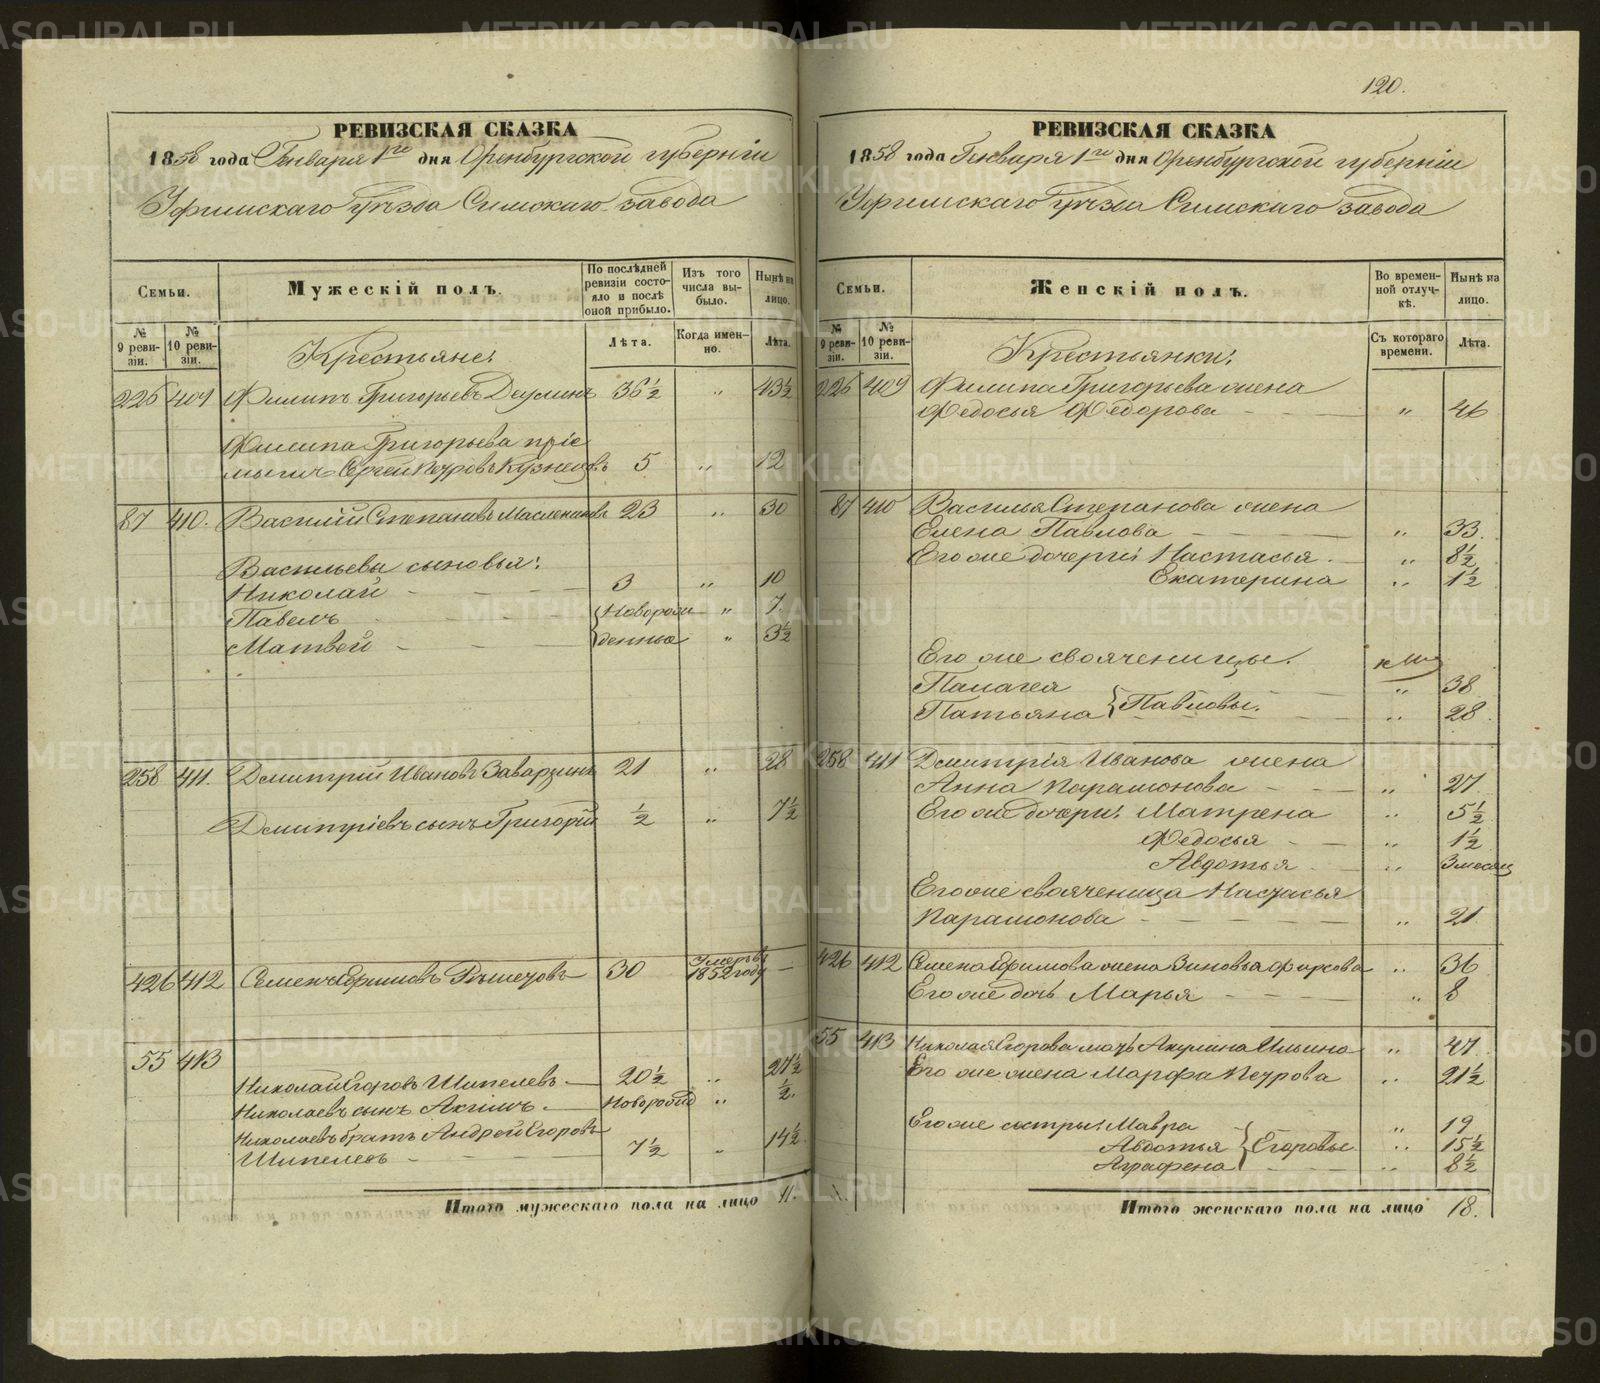 120.
РЕВИЗСКАЯ СКАЗКА
1858 года Генваря 1го дня Оренбургской губернiи
Уфимскаго уѣзда Симскаго завода
Семьи.
Мужескiй полъ.
По послѣдней ревизiи состояло и послѣ оной прибыло.
Изъ того числа выбыло.
Нынѣ на лицо.
№ 9 ревизiи.
№ 10 ревизiи.
Лѣта.
Когда именно.
Лѣта.
Крестьяне:
226 409 Филипъ Григорьевъ Деулинъ 36½ „ 43½
Филипа Григорьева прiе
мышъ Сергей Петровъ Кузнецовъ 5 „ 12
87 410. Василiй Степановъ Маслениковъ 23 „ 30
Васильевы сыновья:
Николай 3 „ 10
Павелъ Новорож „ 7.
Матвей денные „ 3½
258 411. Дмитрiй Ивановъ Заварзинъ 21 „ 28
Дмитрiевъ сынъ Григорiй ½ „ 7½
426 412 Семенъ Ефимовъ Решетовъ 30 Умеръ въ 1852 году —
55 413
Николай Егоровъ Шипелевъ 20½ „ 27½
Николаевъ сынъ Акимъ Новорожд „ ½.
Николаевъ братъ Андрей Егоровъ
Шипелевъ 7½ „ 14½
Итого мужескаго пола на лицо 11.
РЕВИЗСКАЯ СКАЗКА
1858 года Генваря 1го дня Оренбургской губернiи
Уфимскаго уѣзда Симскаго завода
Семьи.
Женскiй полъ.
Во временной отлучкѣ.
Нынѣ на лицо.
№ 9 ревизiи.
№ 10 ревизiи.
Съ котораго времени.
Лѣта.
Крестьянки:
226 409 Филипа Григорьева жена
Федосья Федорова „ 46
87 410 Василья Степанова жена
Елена Павлова „ 33.
Его же дочери: Настасья „ 8½
Екатерина „ 1½
Его же свояченицы:
Палагея „ 38
Татьяна Павловы. „ 28.
258 411 Дмитрiя Иванова жена
Анна Парамонова „ 27.
Его же дочери: Матрена „ 5½
Федосья „ 1½
Авдотья „ 3 месяц
Его же свояченица Настасья
Парамонова „ 21
426 412 Семена Ефимова жена Зиновья Фирсова „ 36
Его же дочь Марья „ 8
55 413 Николая Егорова мать Акулина Ильина „ 47
Его же жена Марфа Петрова „ 21½
Его же сестры: Мавра „ 19
Авдотья Егоровы „ 15½
Аграфена „ 8½
Итого женскаго пола на лицо 18.
METRIKI.GASO-URAL.RU